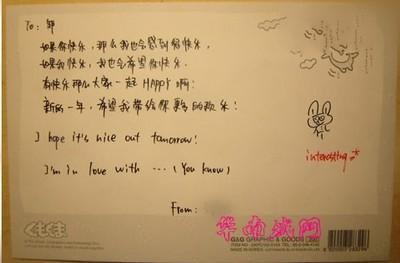 To: 邹
如果你快乐,那么我也会感到很快乐,
如果我快乐,我也会希望你快乐。
有快乐那么大家一起HAPPY啊!
新的一年,希望我带给你更多的欢乐!
I hope it's nice out tomorrow!
I'm in love with ... (You know)
interesting
From:
华南城网
くまくま
G&G GRAPHIC & GOODS
MADE IN KOREA